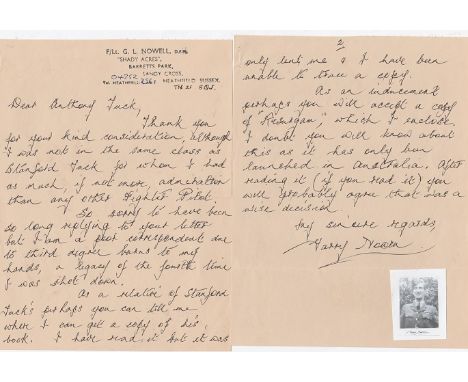 F/Lt. G. L. NOWELL, D.F.M.
"SHADY ACRES",
BARRETTS PARK,
SANDY CROSS,
HEATHFIELD SUSSEX
TN 21 8QJ.
Dear Anthony Tuck,
Thank you
for your kind consideration, although
I was not in the same class as
Stanford Tuck for whom I had
as much, if not more, admiration
than any other Fighter Pilot.
So, sorry to have been
so long replying to your letter
but I am a poor correspondent due
to third degree burns to my
hands, a legacy of the fourth time
I was shot down.
As a relative of Stanford
Tuck's perhaps you can tell me
where I can get a copy of his
book. I have read it but it was
2
only lent me & I have been
unable to trace a copy.
As an inducement
perhaps you will accept a copy
of which I enclose
I doubt you will know about
this as it has only been
launched in Australia. After
reading it (if you read it) you
will probably agree that was a
wise decision
My sincere regards,